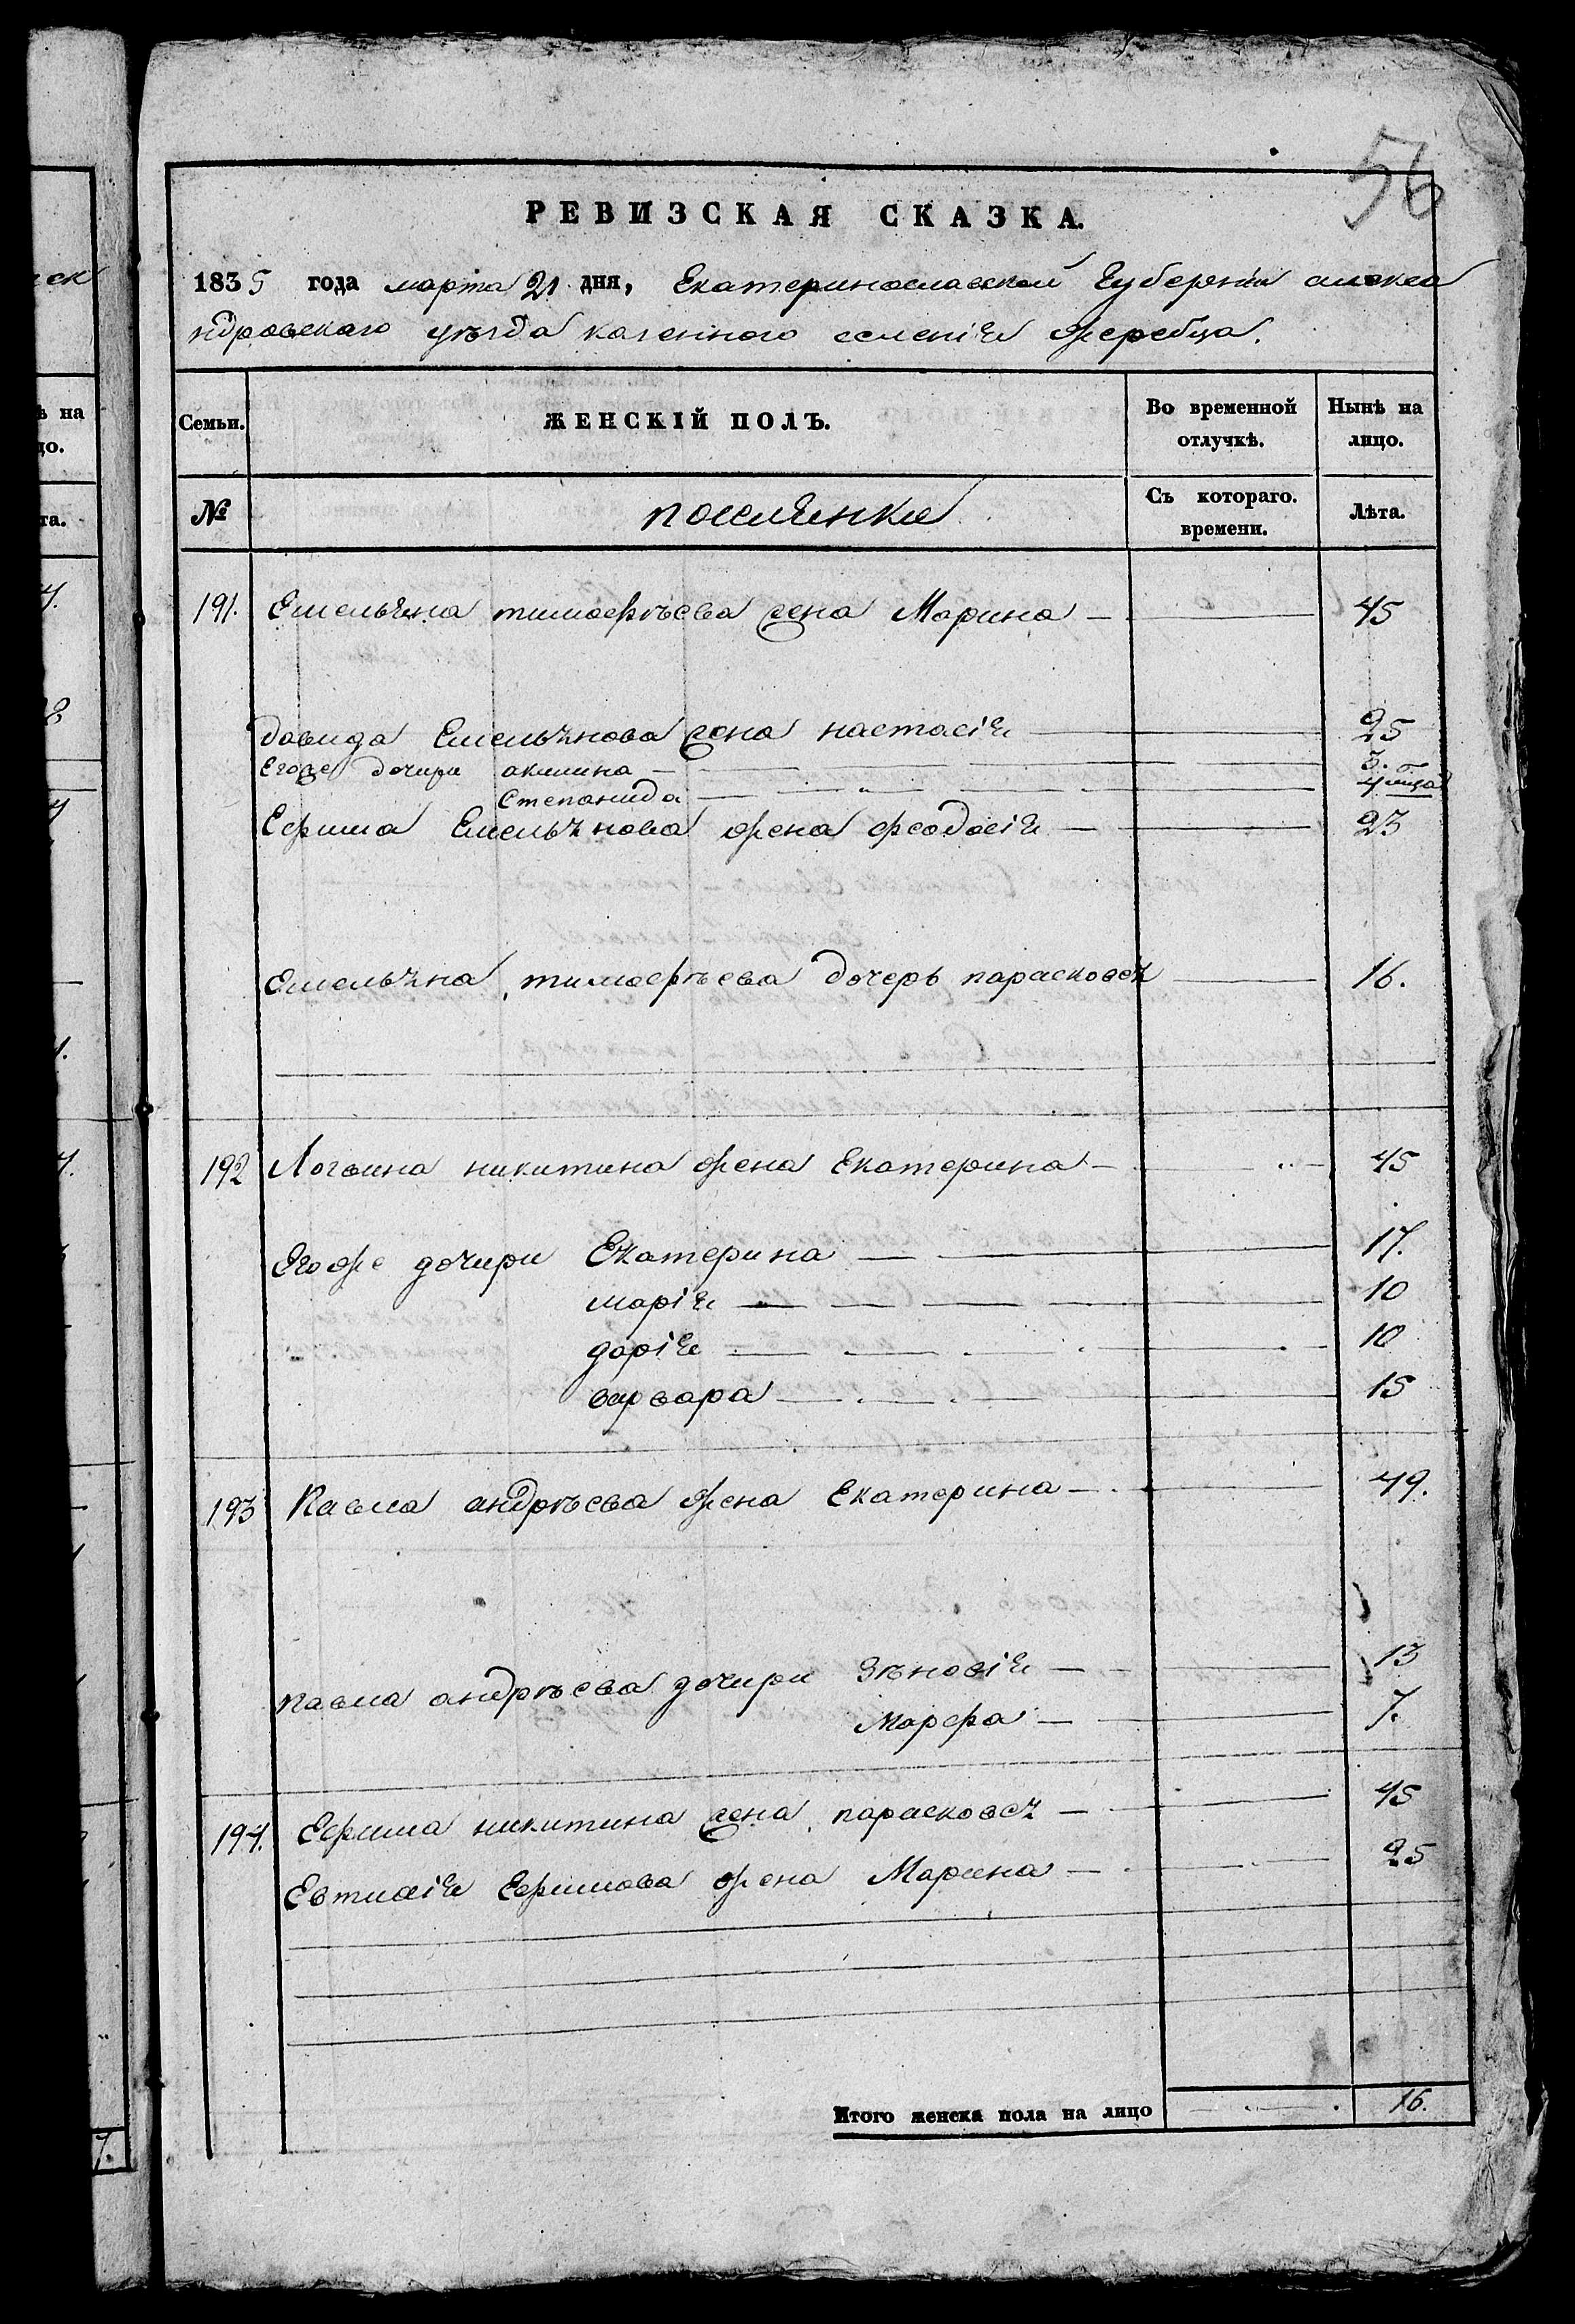 56
РЕВИЗСКАЯ СКАЗКА.
1835 года марта 21 дня, Екатеринославской Губерніи алекса
ндровскаго уѣзда казенного селенія жеребца.
Семьи. ЖЕНСКІЙ ПОЛЪ. Во временной отлучкѣ. Нынѣ на лицо.
№ поселянки Съ котораго. времени. Лѣта.
191. Емельяна тимофѣева жена Марина 45
давида Емельянова жена настасія 25
Егоже дочири акилина 3.
Степанида 4 мсца
Ефима Емельянова жена феодосія 23
Емельяна тимофѣева дочерь парасковея 16.
192 Логвина никитина жена Екатерина 45
Егоже дочири Екатерина 17.
марія 10
дарія 10
варвара 15
193 Павла андрѣева жена Екатерина 49.
павла андрѣева дочири Зѣновія 13
Марфа 7.
194. Ефима никитина жена парасковея 45
Евтихія Ефимова жена Марина 25
Итого женска пола на лицо 16.
ск
ѣ на
цо.
та.
4.
8
7.